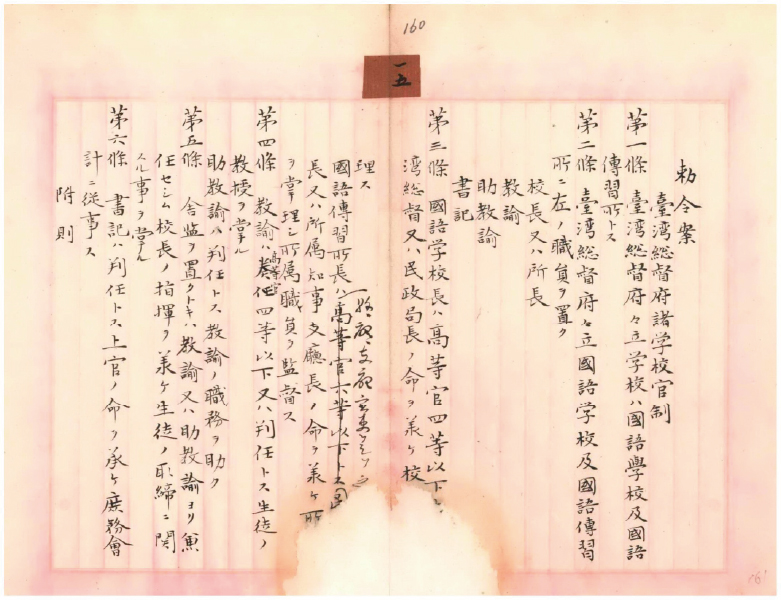 160
一五
勅令案
臺湾総督府諸学校官制
第一條 臺湾総督府々立学校ハ國語學校及國語
傳習所トス
第二條 臺湾総督府々立國語学校及國語傳習
所ニ左ノ職員ヲ置ク
校長又ハ所長
教諭
助教諭
書記
第三條 國語学校長ハ高等官四等以下
湾総督又ハ民政局長ノ命ヲ承ケ校
理ス
國語傳習所長ハ高等官六等以下トス
長又ハ所属知事支廳長ノ命ヲ承ケ所
ヲ掌理シ所属職員ヲ監督ス
第四條 教諭ハ高等官四等以下又ハ判任トス生徒ノ
教授ヲ掌ル
助教諭ハ判任トス教諭ノ職務ヲ助ク
第五條 舎監ヲ置クトキハ教諭又ハ助教諭ヨリ兼
任セシム校長ノ指揮ヲ承ケ生徒ノ取締ニ関
スル事ヲ掌ル
第六條 書記ハ判任トス上官ノ命ヲ承ケ庶務會
計ニ従事ス
附則